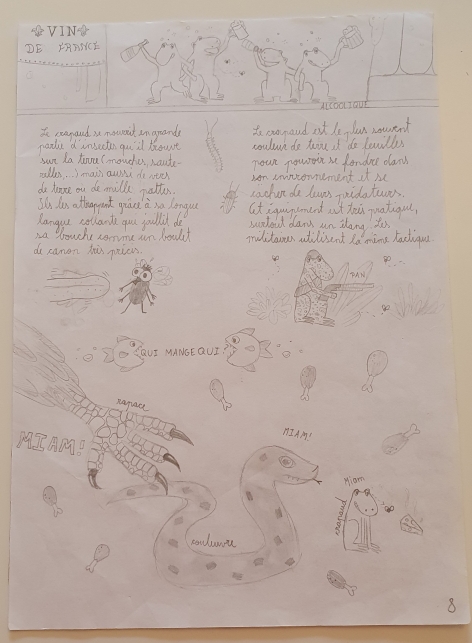 VIN
DE FRANCE
ALCOOLIQUE
Le crapaud se nourrit en grande
partie d'insectes qu'il trouve
sur la terre (mouches, saute-
relles,...) mais aussi de vers
de terre ou de mille pattes.
Ils les attrappent grâce à sa longue
langue collante qui jaillit de
sa bouche comme un boulet
de canon très précis.
Le crapaud est le plus souvent
couleur de terre et de feuilles
pour pouvoir se fondre dans
son environnement et se
cacher de leurs prédateurs.
Cet équipement est très pratique,
surtout dans un étang. Les
militaires utilisent la même tactique.
PAN
QUI MANGE QUI
rapace
MIAM!
MIAM!
couleuvre
Miam
crapaud
8